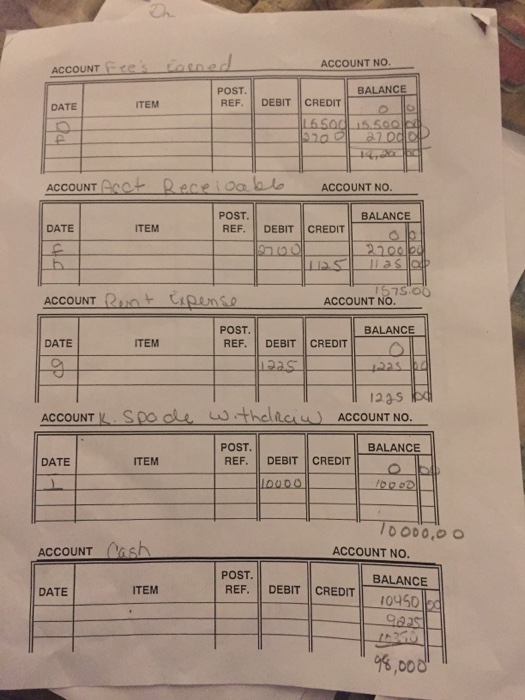 ACCOUNT Fee's Earned ACCOUNT NO.
DATE ITEM POST. REF. DEBIT CREDIT BALANCE
0 0
D 15500 15,500 00
f 2700 2700 00
ACCOUNT Acct Receivable ACCOUNT NO.
DATE ITEM POST. REF. DEBIT CREDIT BALANCE
0 0
f 2700 2700 00
h 1125 1125 00
1575.00
ACCOUNT Rent Expense ACCOUNT NO.
DATE ITEM POST. REF. DEBIT CREDIT BALANCE
0
g 1225 1225 00
1225 00
ACCOUNT K. Spade withdraw ACCOUNT NO.
DATE ITEM POST. REF. DEBIT CREDIT BALANCE
0 00
I 10000 10000
10000,00
ACCOUNT Cash ACCOUNT NO.
DATE ITEM POST. REF. DEBIT CREDIT BALANCE
10450 00
9225
98,000